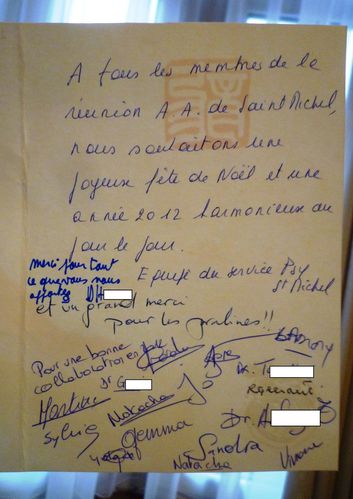 A tous les membres de la
réunion A.A. de Saint Michel,
nous souhaitons une
joyeux fête de Noël et une
année 2012 harmonieux au
jour le jour.
Equipe du service Psy
St Michel
merci pour tout
ce que vous nous
apportez DH
et un grand merci
pour les pralines!!
Pour une bonne
collaboration
Dr G
Dr. T
Martine
Natacha
Dr. A
Sylvie
Gemma
Sandra
Natacha
Viviane